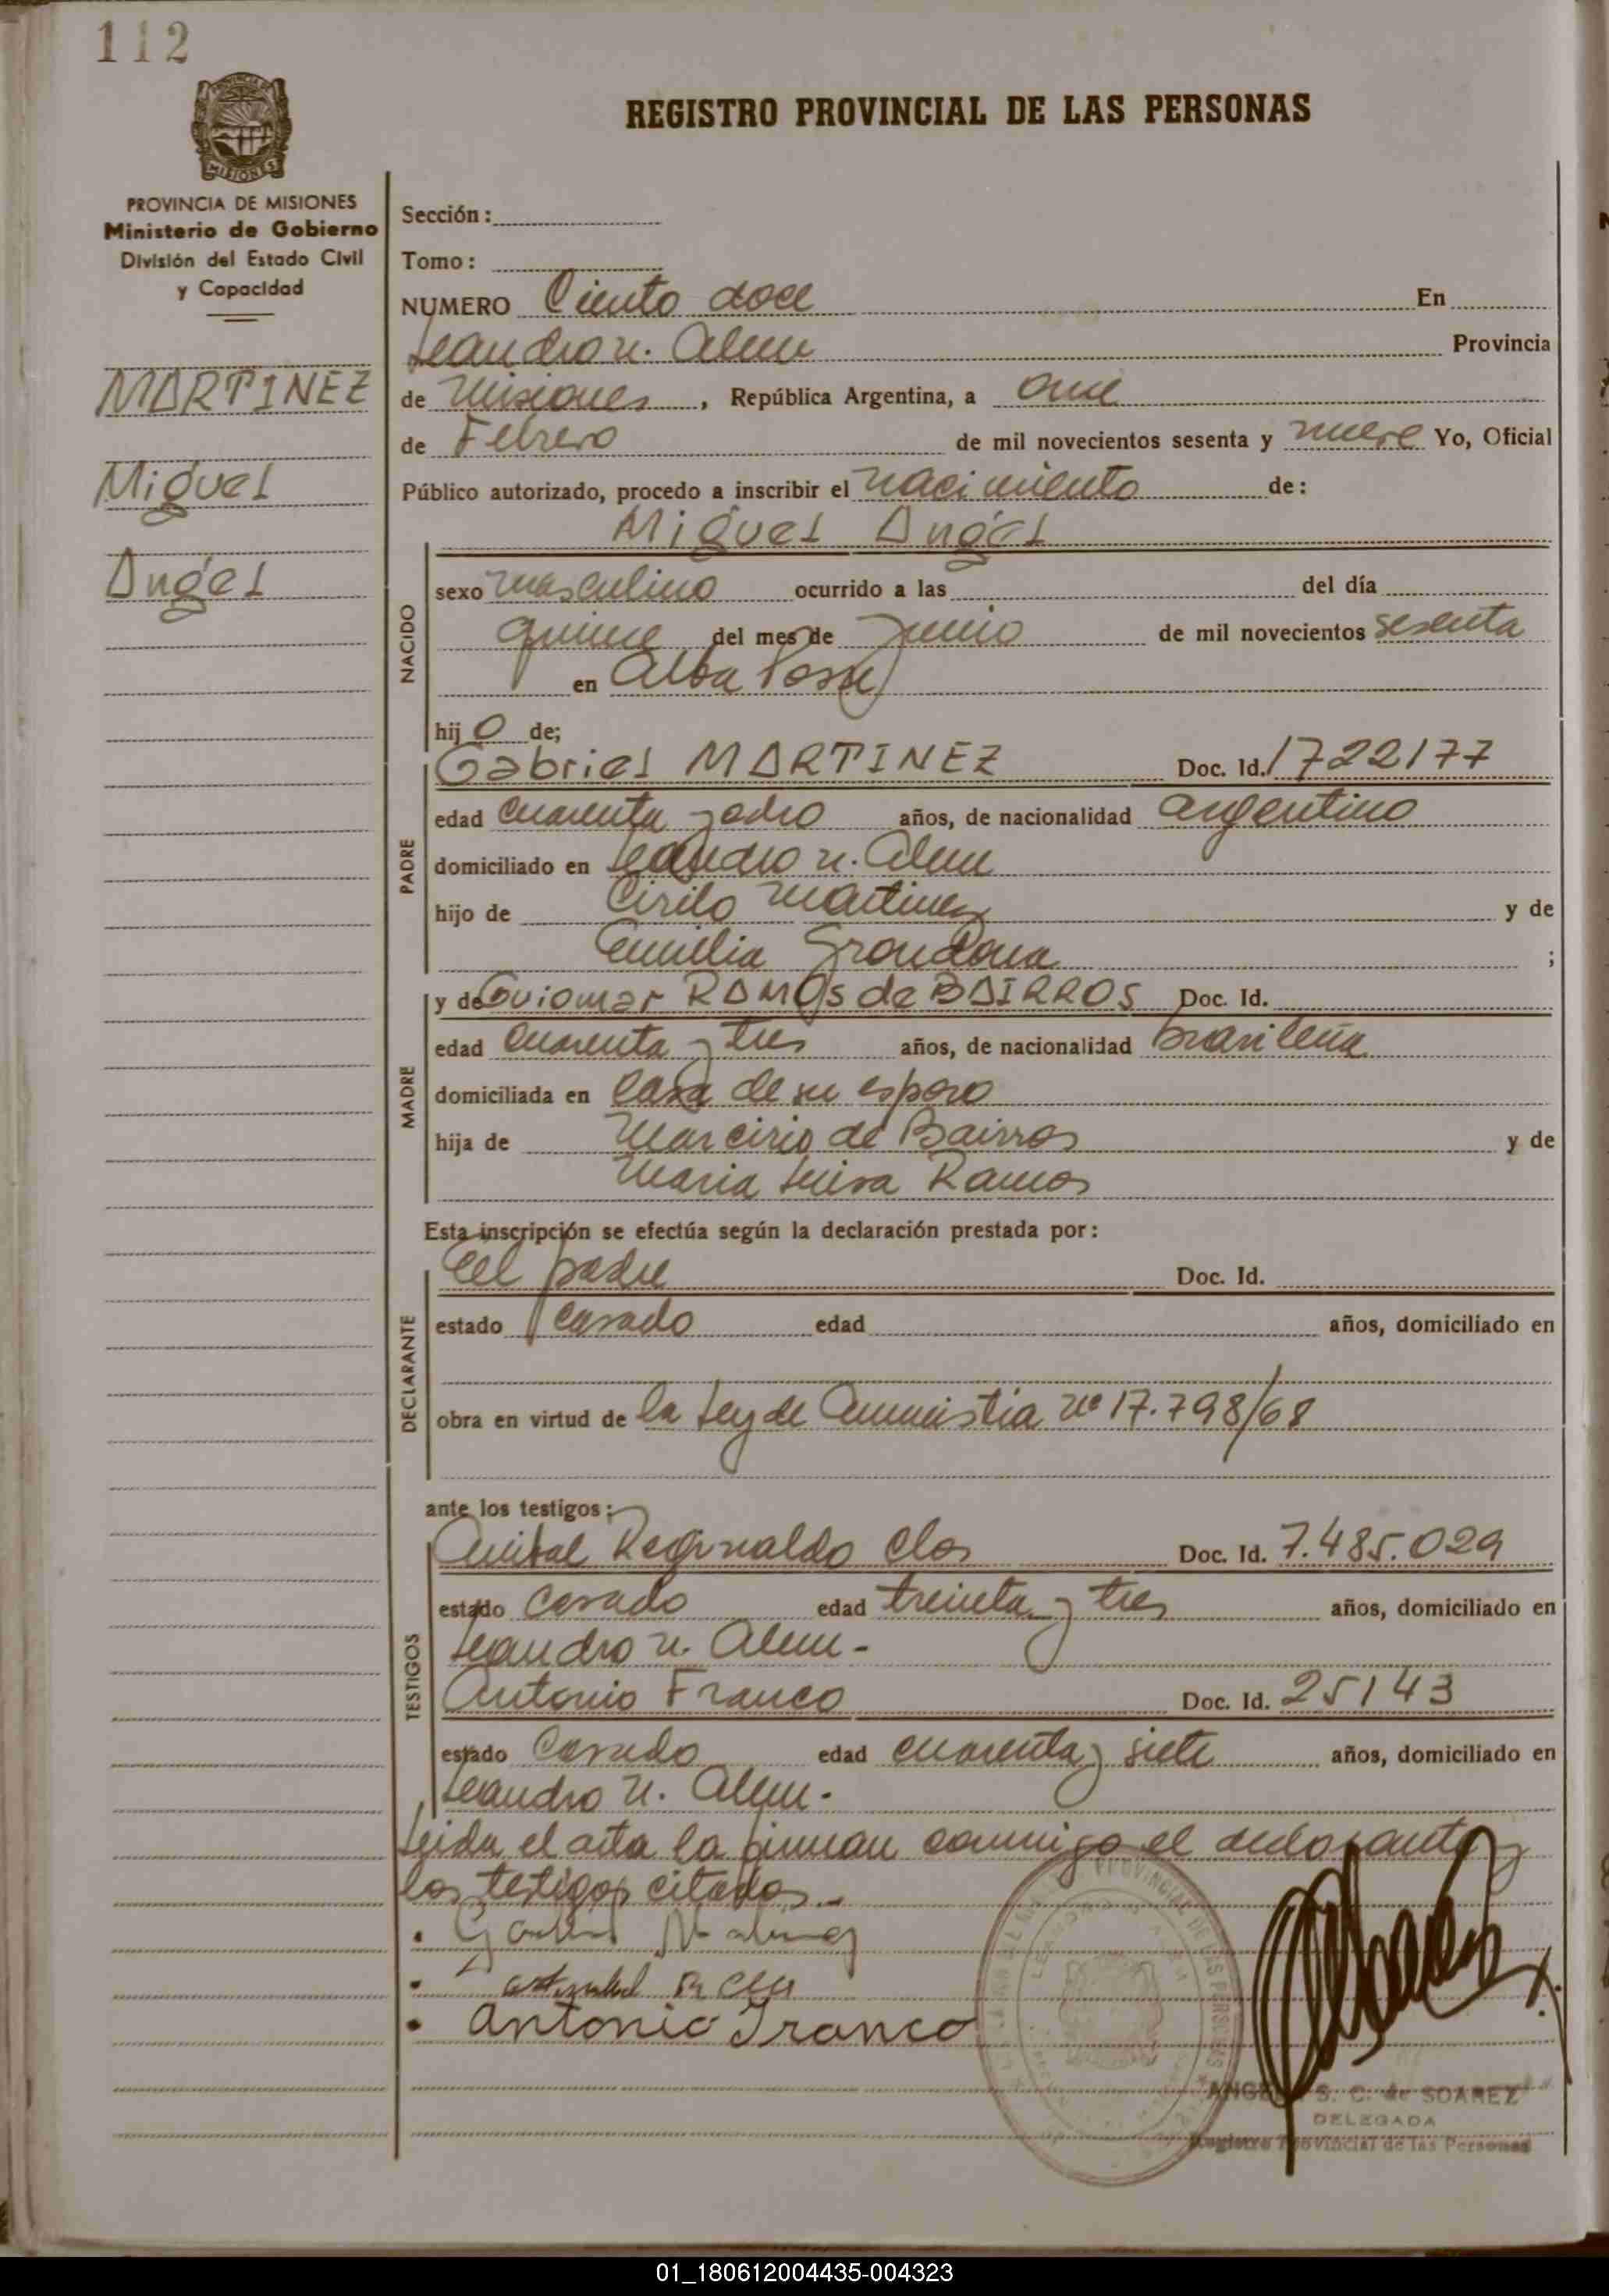 112
REGISTRO PROVINCIAL DE LAS PERSONAS
MISIONES
PROVINCIA DE MISIONES
Ministerio de Gobierno
División del Estado Civil
y Capacidad
MARTINEZ
Miguel
Angel
Sección:
Tomo:
NUMERO Ciento doce En
Leandro N. Alem Provincia
de Misiones, República Argentina, a once
de Febrero de mil novecientos sesenta y nueve Yo, Oficial
Público autorizado, procedo a inscribir el nacimiento de:
Miguel Angel
NACIDO
sexo masculino ocurrido a las del día
quince del mes de Junio de mil novecientos sesenta
en Alba Posse
hijo de;
PADRE
Gabriel MARTINEZ Doc. Id. 1722177
edad cuarenta y ocho años, de nacionalidad argentino
domiciliado en Leandro N. Alem
hijo de Cirilo Martinez y de
Emilia Grondona ;
MADRE
y de Guiomar RAMOS de BAIRROS Doc. Id.
edad cuarenta y tres años, de nacionalidad brasileña
domiciliada en casa de su esposo
hija de Marcirio de Bairros y de
Maria Luisa Ramos
Esta inscripción se efectúa según la declaración prestada por:
DECLARANTE
El padre Doc. Id.
estado casado edad años, domiciliado en
obra en virtud de la Ley de Amnistia nº 17.798/68
ante los testigos:
TESTIGOS
Anibal Reginaldo Clos Doc. Id. 7.485.029
estado casado edad treinta y tres años, domiciliado en
Leandro N. Alem -
Antonio Franco Doc. Id. 25143
estado casado edad cuarenta y siete años, domiciliado en
Leandro N. Alem.
Leida el acta la firman conmigo el declarante y
los testigos citados.-
Antonio Franco
S. C. de SOAREZ
DELEGADA
Registro Provincial de las Personas
01_180612004435-004323